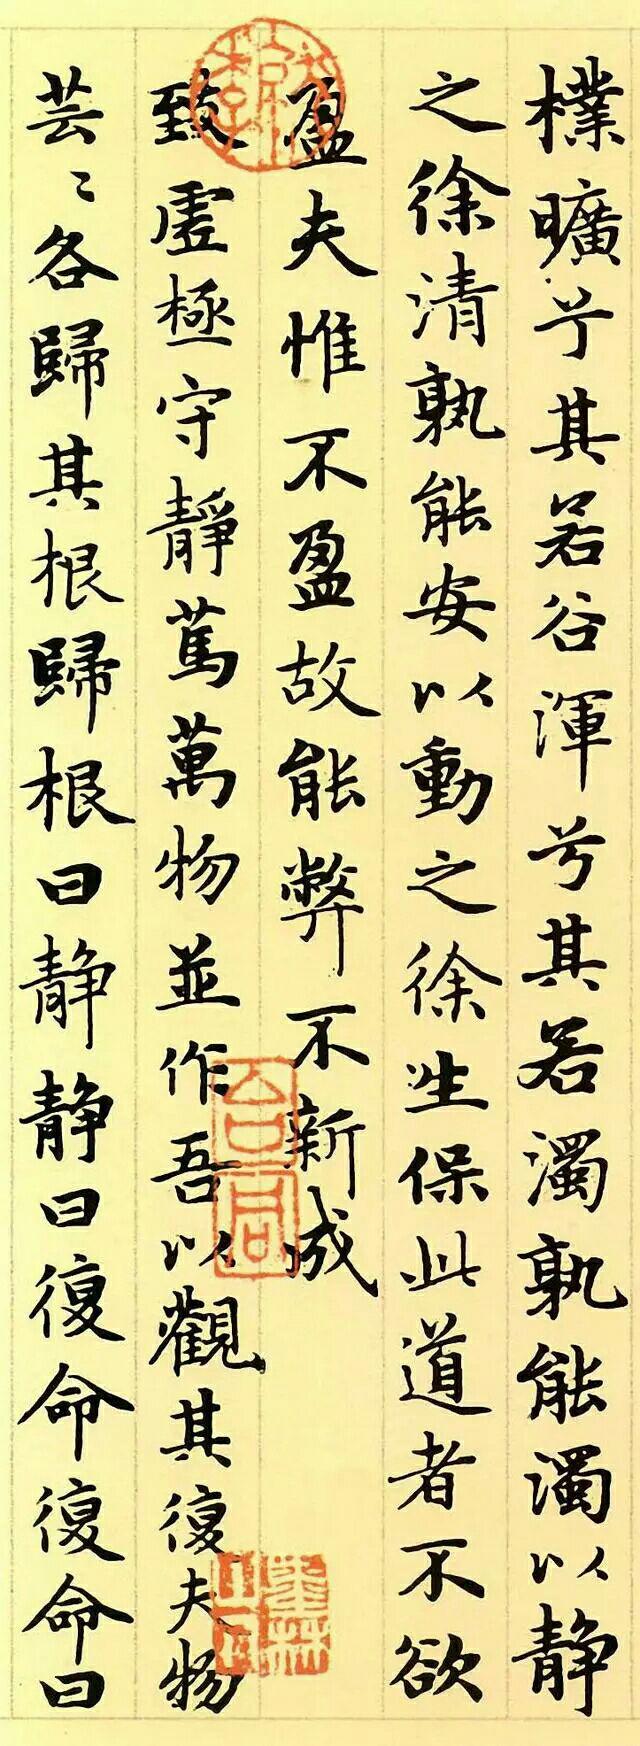 樸曠兮其若谷渾兮其若濁孰能濁以静
之徐清孰能安以動之徐生保此道者不欲
盈夫惟不盈故能弊不新成
致虛極守靜篤萬物並作吾以觀其復夫物
芸〻各歸其根歸根曰静静曰復命復命曰